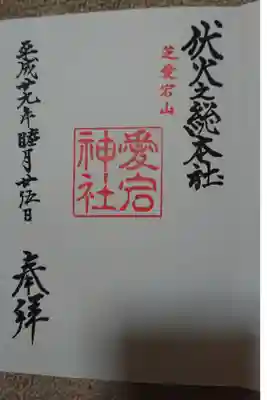 伏火之総本社
芝愛宕山
愛宕
神社
平成廿九年睦月廿五日
奉拝